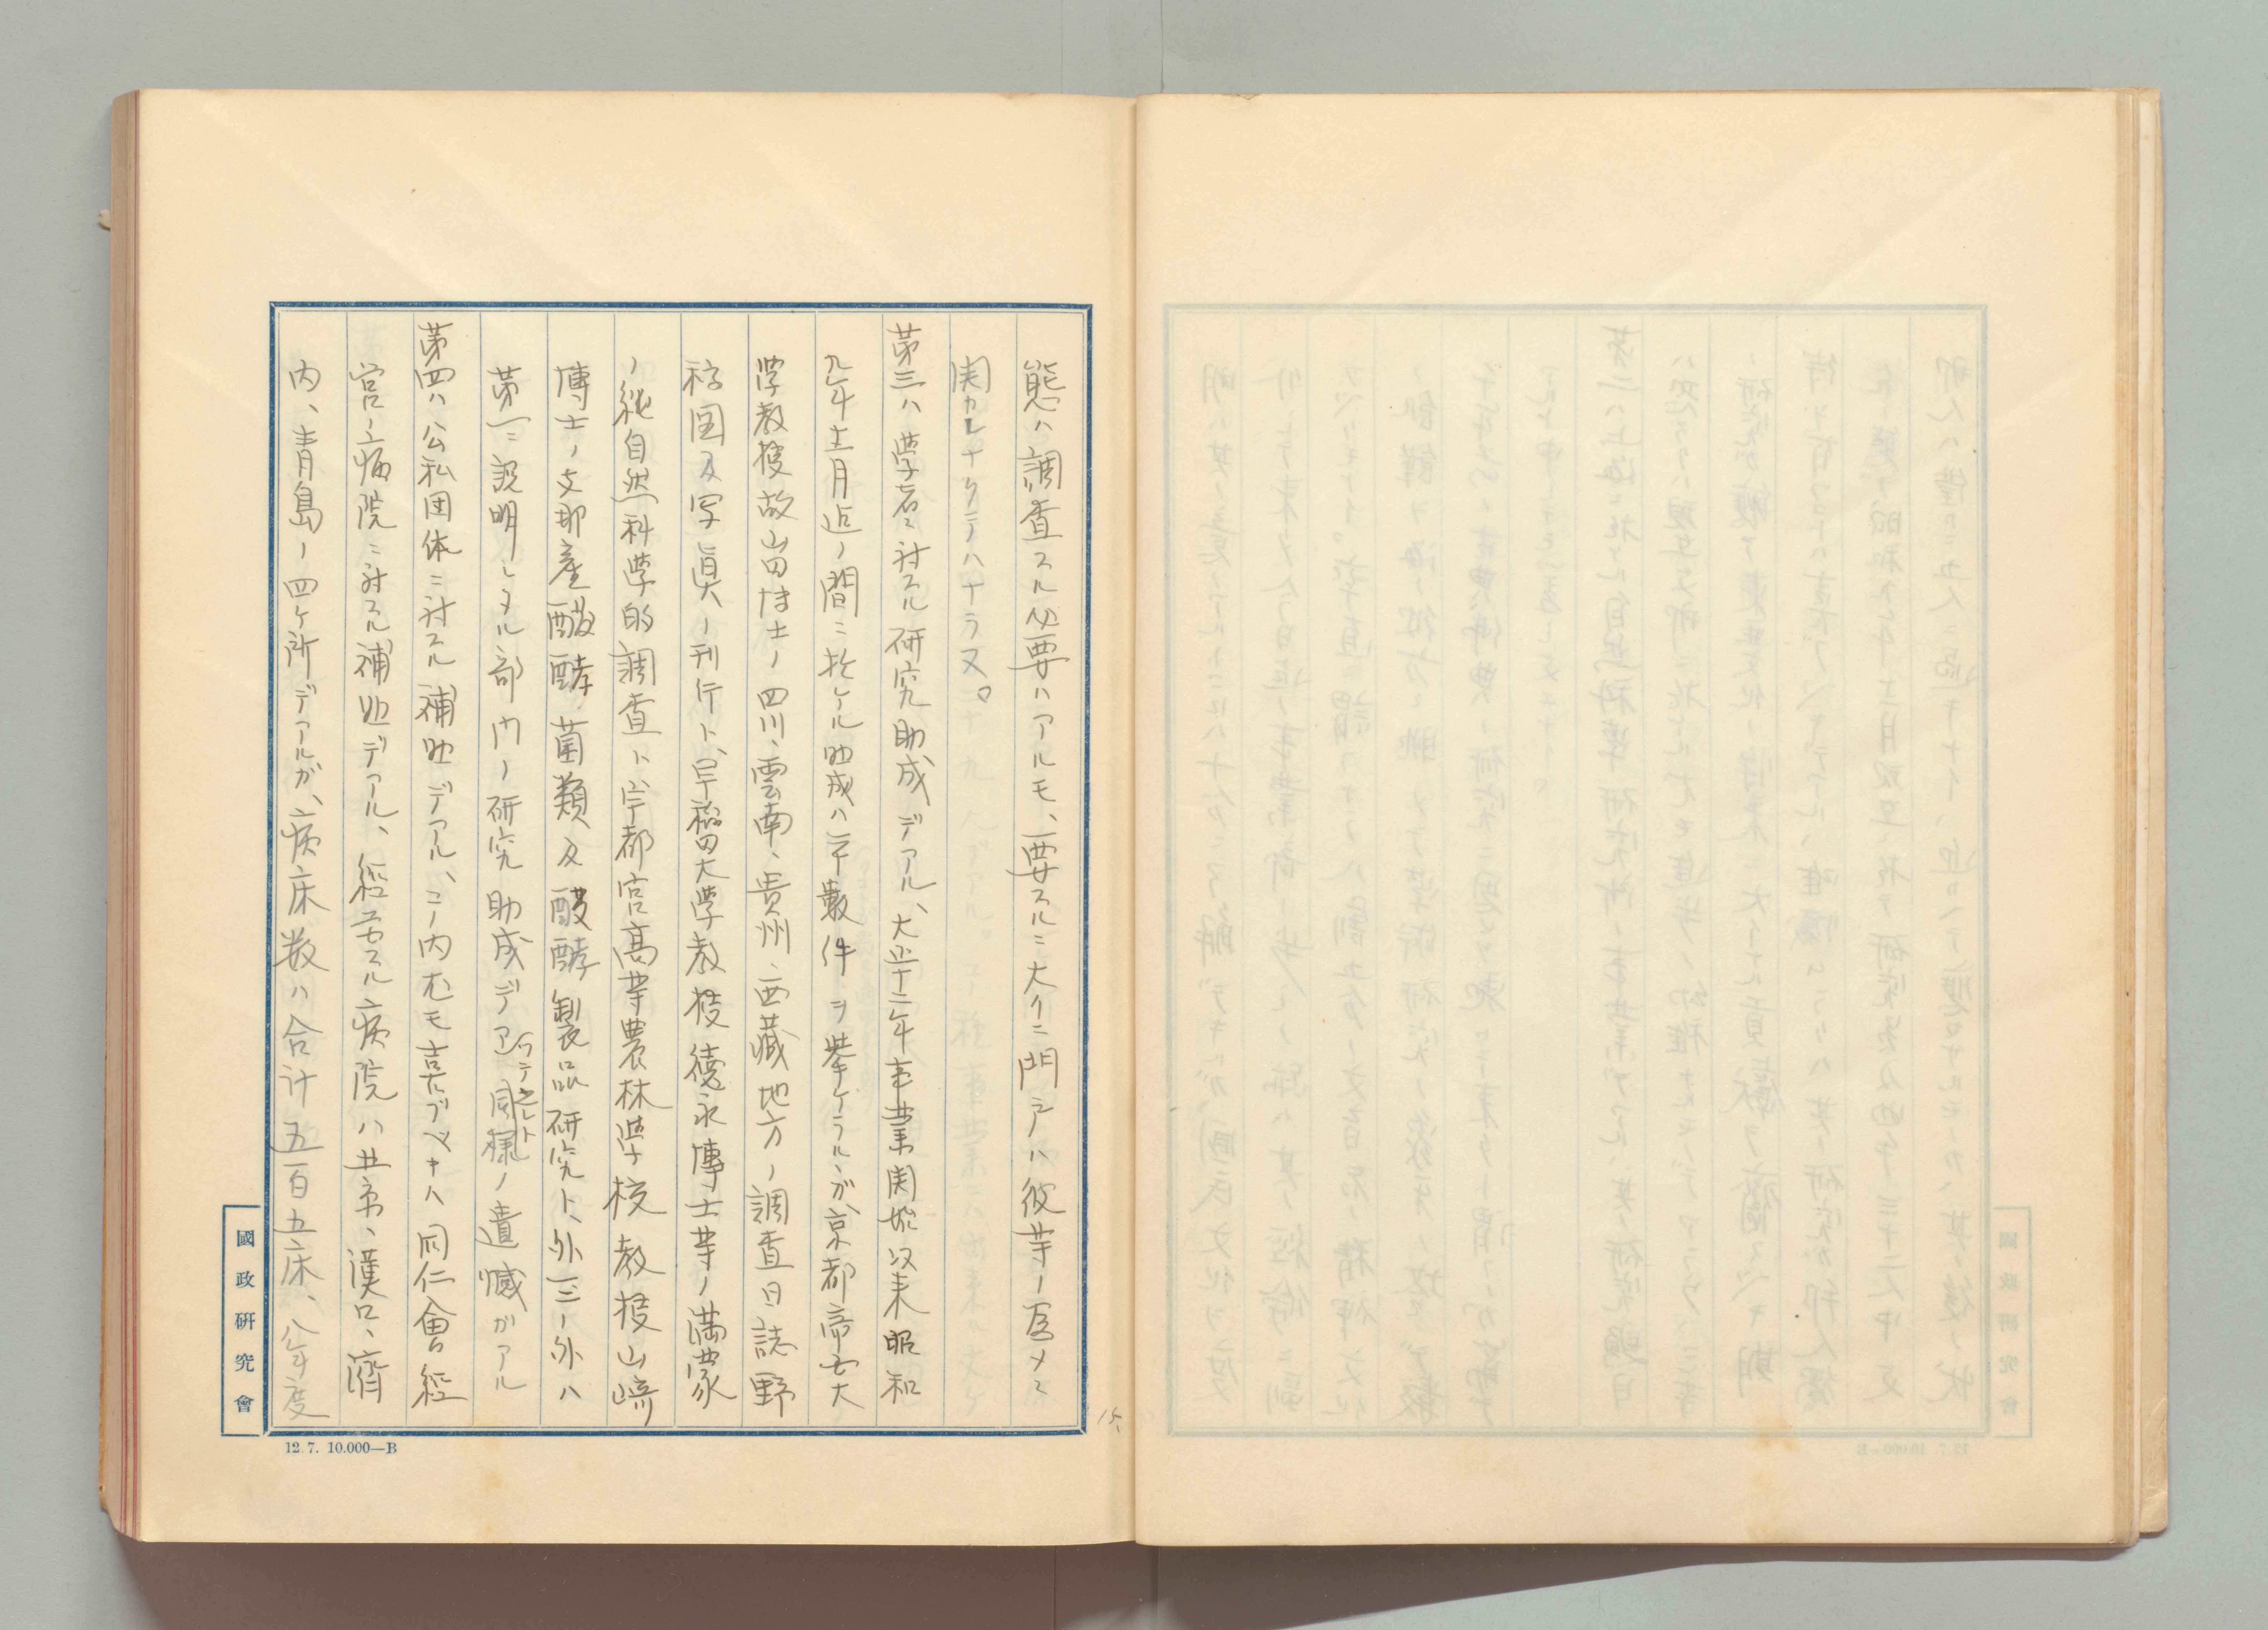 態ハ調査スル必要ハアルモ、要スルニ大イニ門戸ハ彼等ノ為メニ
開カレナクテハナラヌ。
第三ハ学者ニ対スル研究助成デアル、大正十二年事業開始以来昭和
九年十二月迄ノ間ニ於ケル助成ハ二十数件ヲ挙ケラルヽガ、京都帝大
学教授故山田博士ノ四川、雲南、貴州、西藏地方ノ調査日誌野
稿図及写真ノ刊行ト、早稲田大学教授徳永博士等ノ満蒙
ノ純自然科学的調査ト、宇都宮高等農林学校教授山﨑
博士ノ支那産醱酵菌類及醱酵製品研究ト、外三ノ外ハ
第一ニ説明シタル部門ノ研究助成デアツテ同様ノ遺憾ガアル
第四ハ公私団体ニ対スル補助デアル、コノ内尤モ喜ブベキハ同仁會経
営ノ病院ニ対スル補助デアル、経営スル病院ハ北京、漢口、濟
内、青島ノ四ヶ所デアルガ、病床数ハ合計五百五床、八年度
國政研究會
12.7. 10.000—B
15